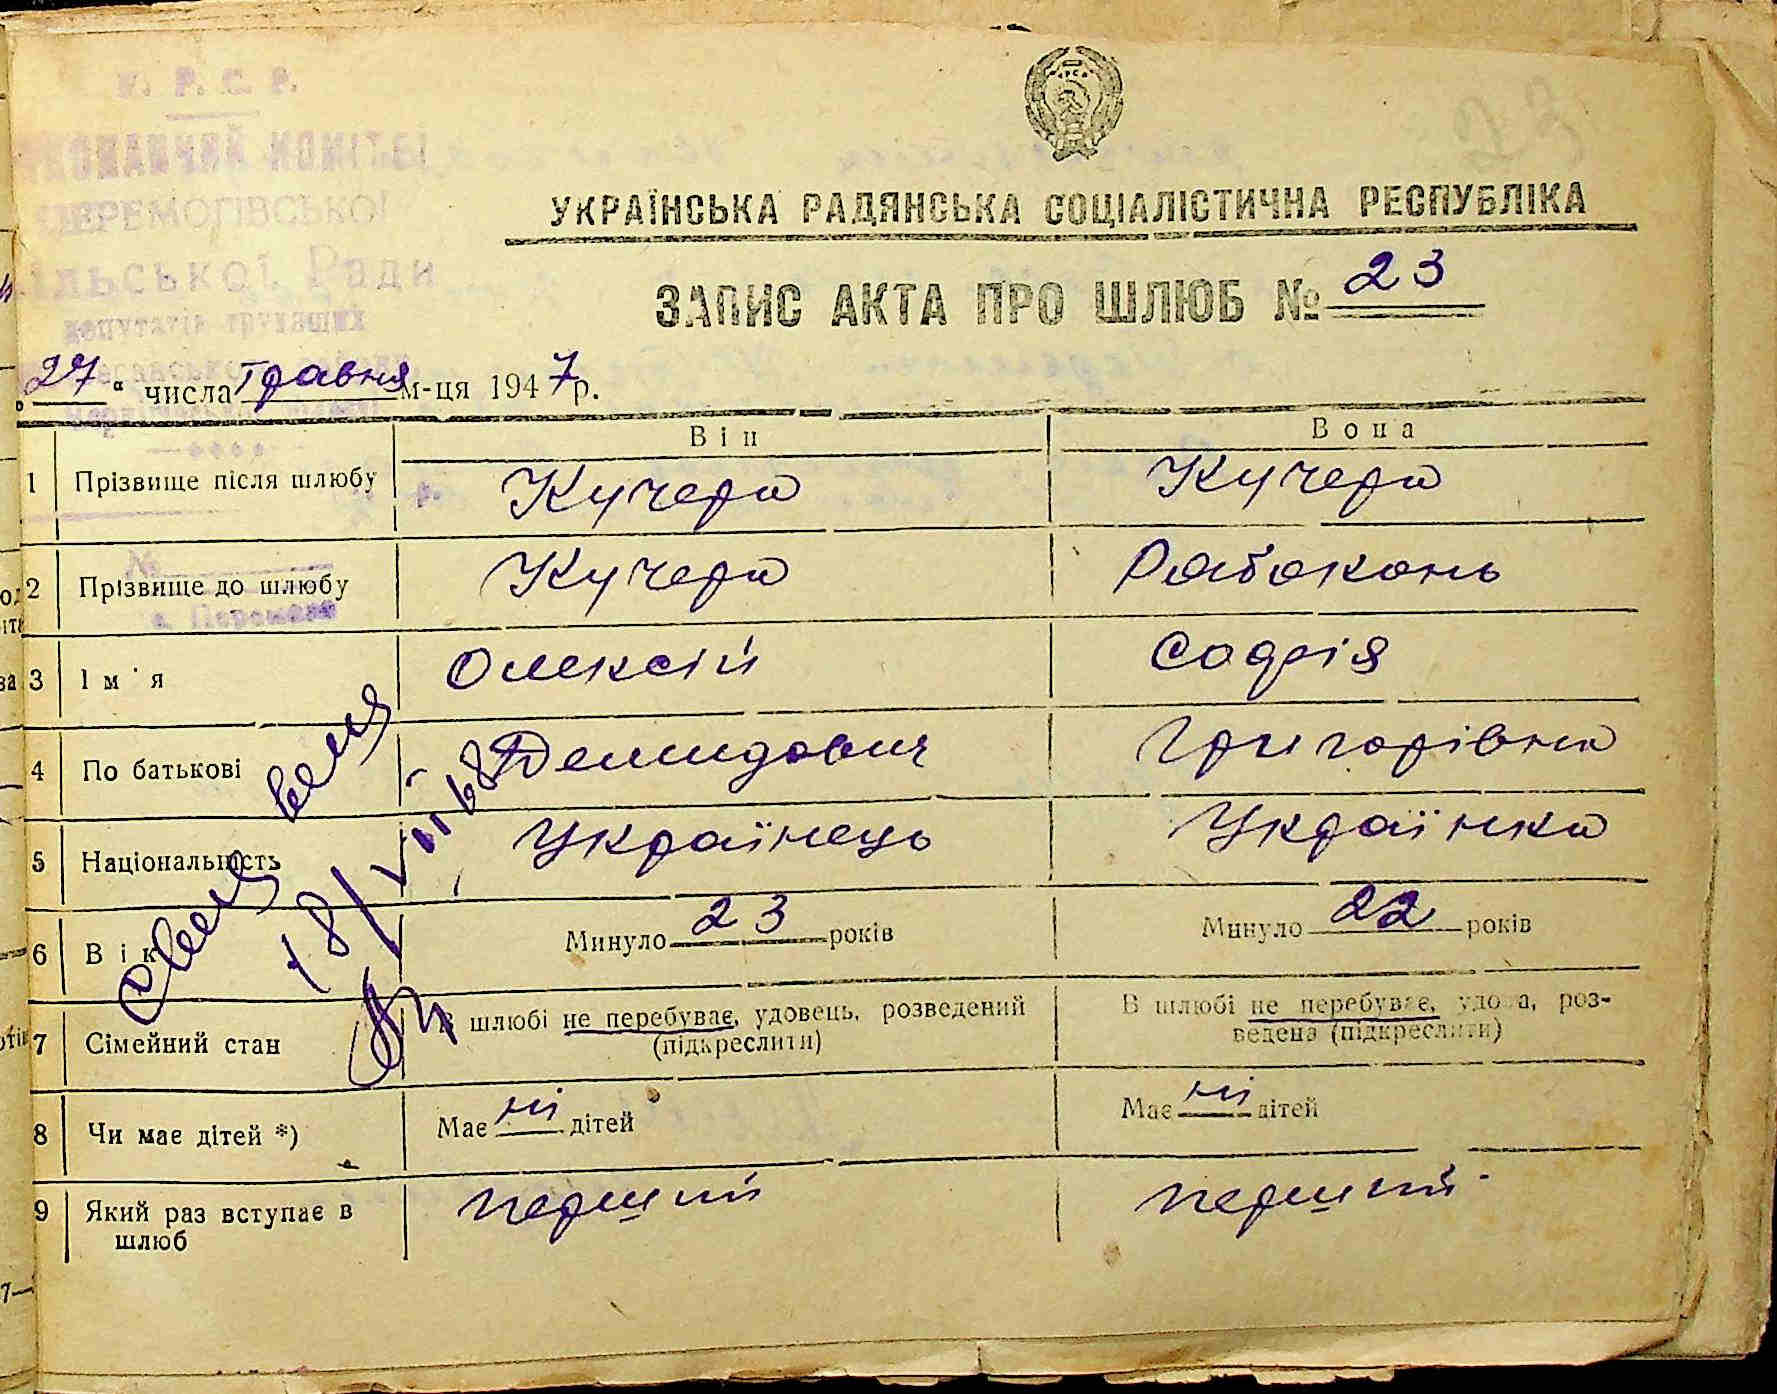 У. Р. С. Р.
КОМІТЕТ
ПЕРЕМОГІВСЬКОЇ
Ради
депутатів трудящих
23
УКРАЇНСЬКА РАДЯНСЬКА СОЦІАЛІСТИЧНА РЕСПУБЛІКА
ЗАПИС АКТА ПРО ШЛЮБ № 23
„27“ числа травня м-ця 1947 р.
Він Вона
1 Прізвище після шлюбу Кучера Кучера
2 Прізвище до шлюбу Кучера Рябоконь
3 Ім'я Олексій Софія
4 По батькові Демидович Григорівна
5 Національність Українець Українка
6 Вік Минуло 23 років Минуло 22 років
7 Сімейний стан В шлюбі не перебуває, удовець, розведений (підкреслити) В шлюбі не перебуває, удова, роз-
ведена (підкреслити)
8 Чи має дітей *) Має ні дітей Має ні дітей
9 Який раз вступає в перший перший
шлюб
18/VII 68